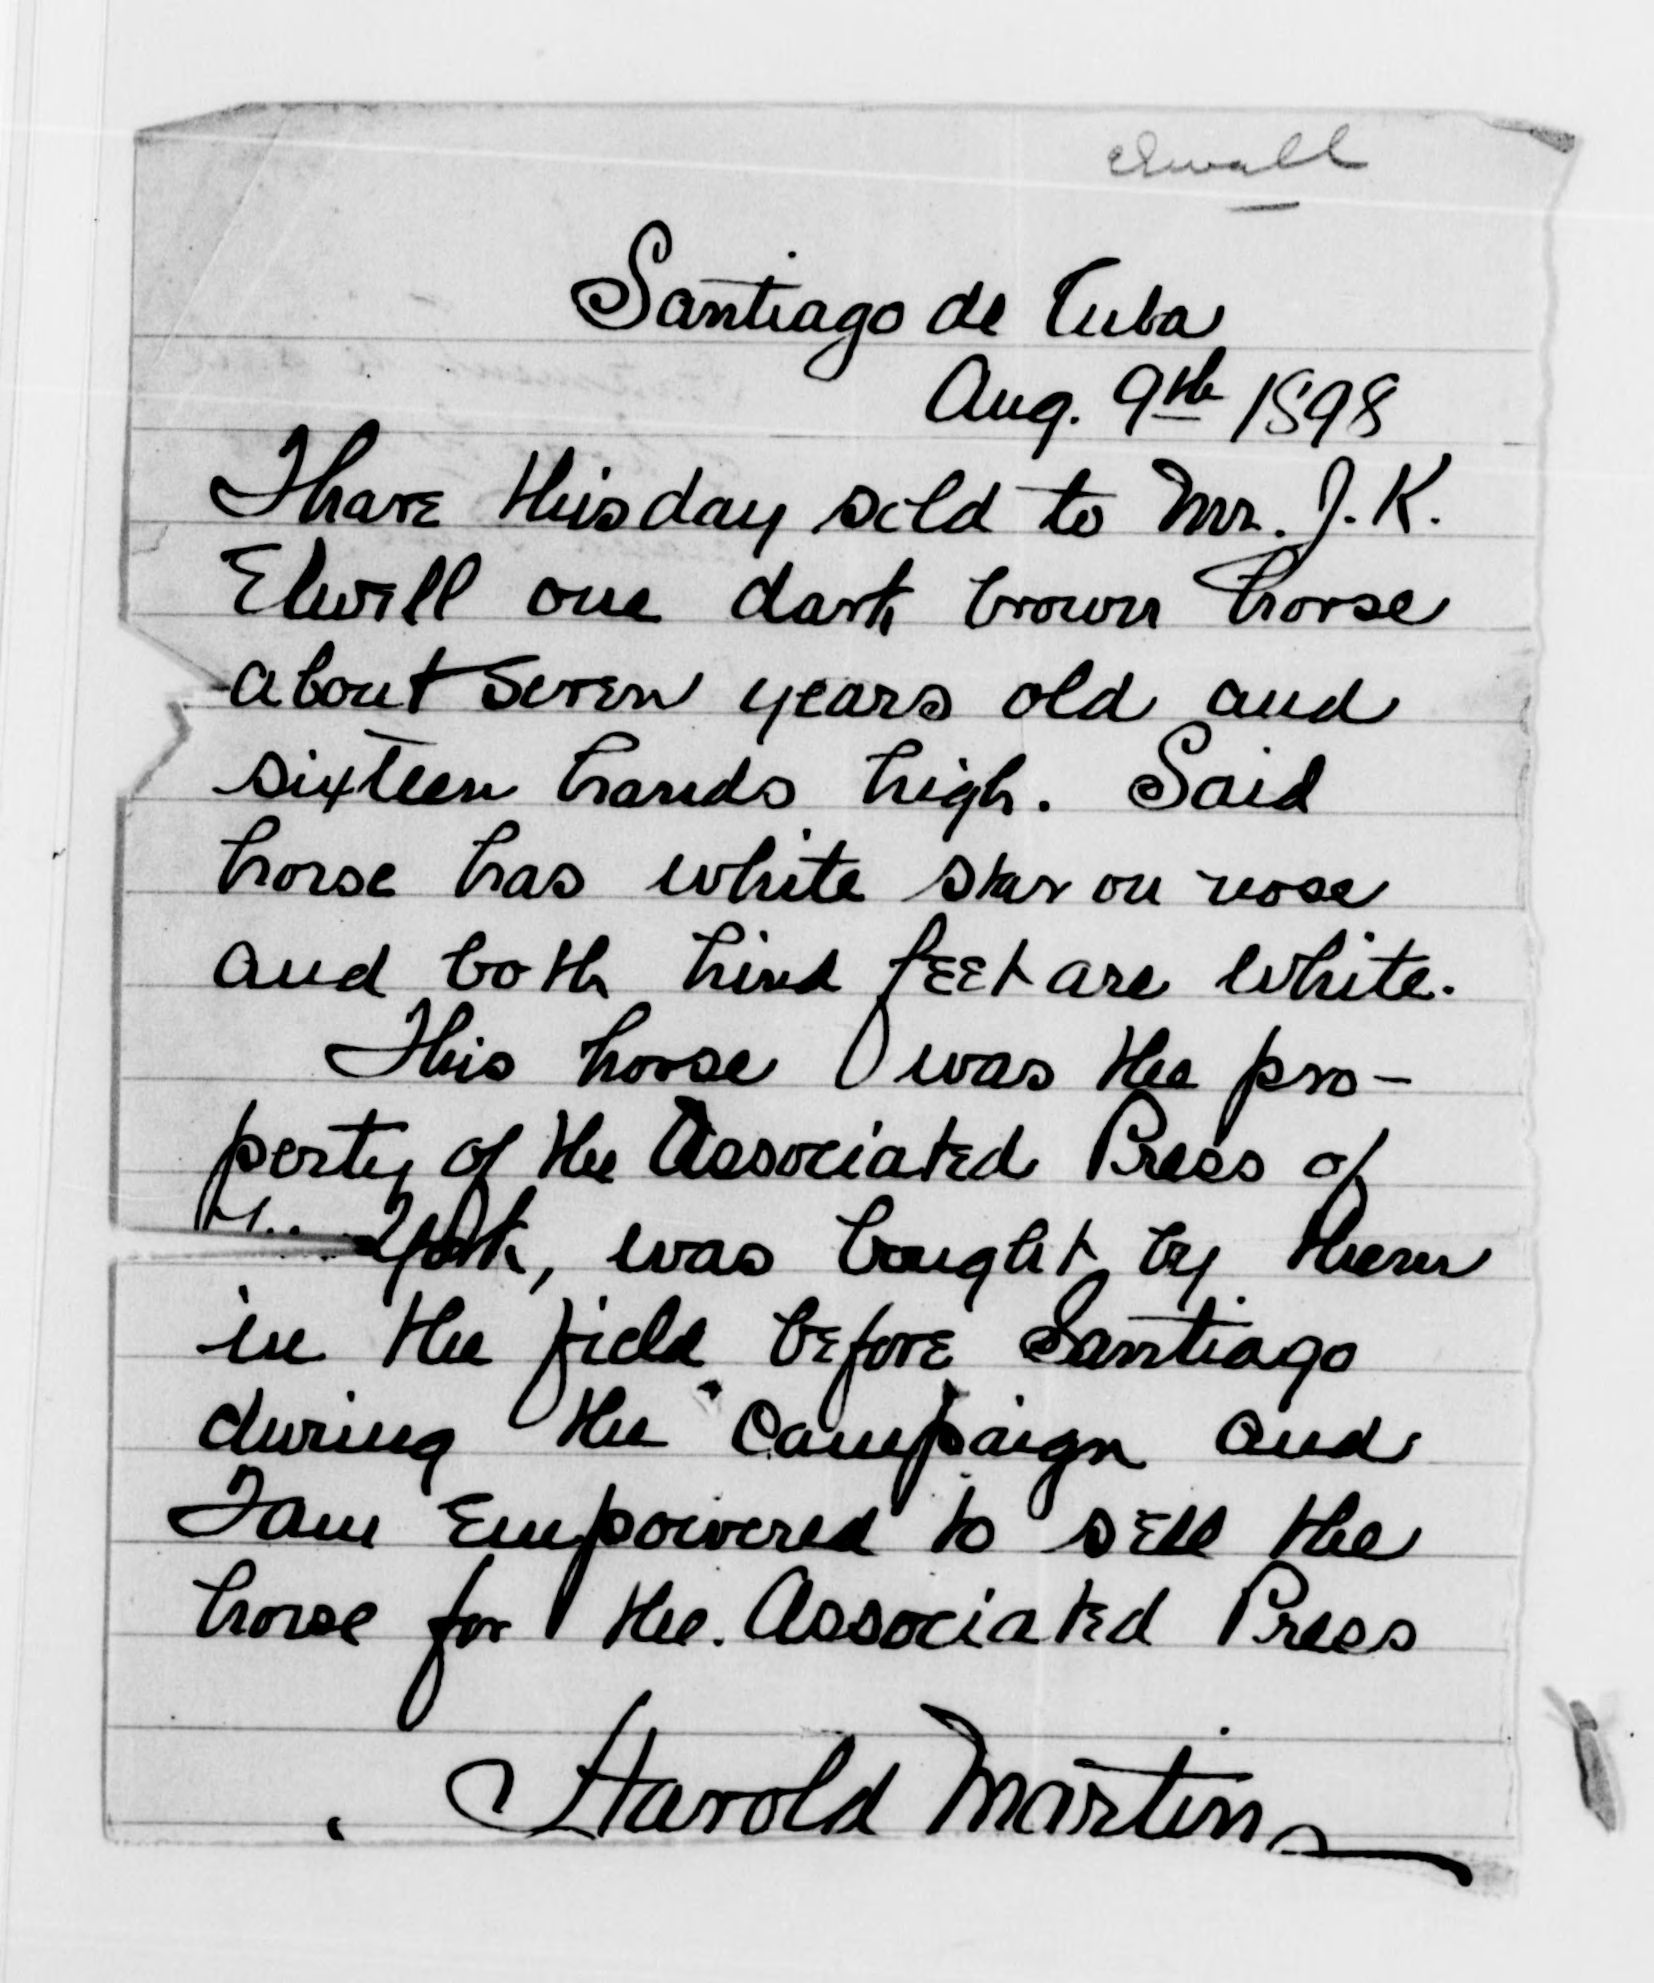 Elwell
Santiago de Cuba
Aug. 9th 1898
I have this day sold to Mr. J. K.
Elwell one dark brown horse
about seven years old and
sixteen hands high. Said
horse has white star on nose
and both hind feet are white.
This horse was the pro-
perty of the Associated Press of
York, was bought by them
in the field before Santiago
during the campaign and
I am empowered to sell the
horse for the Associated Press
Harold Martin